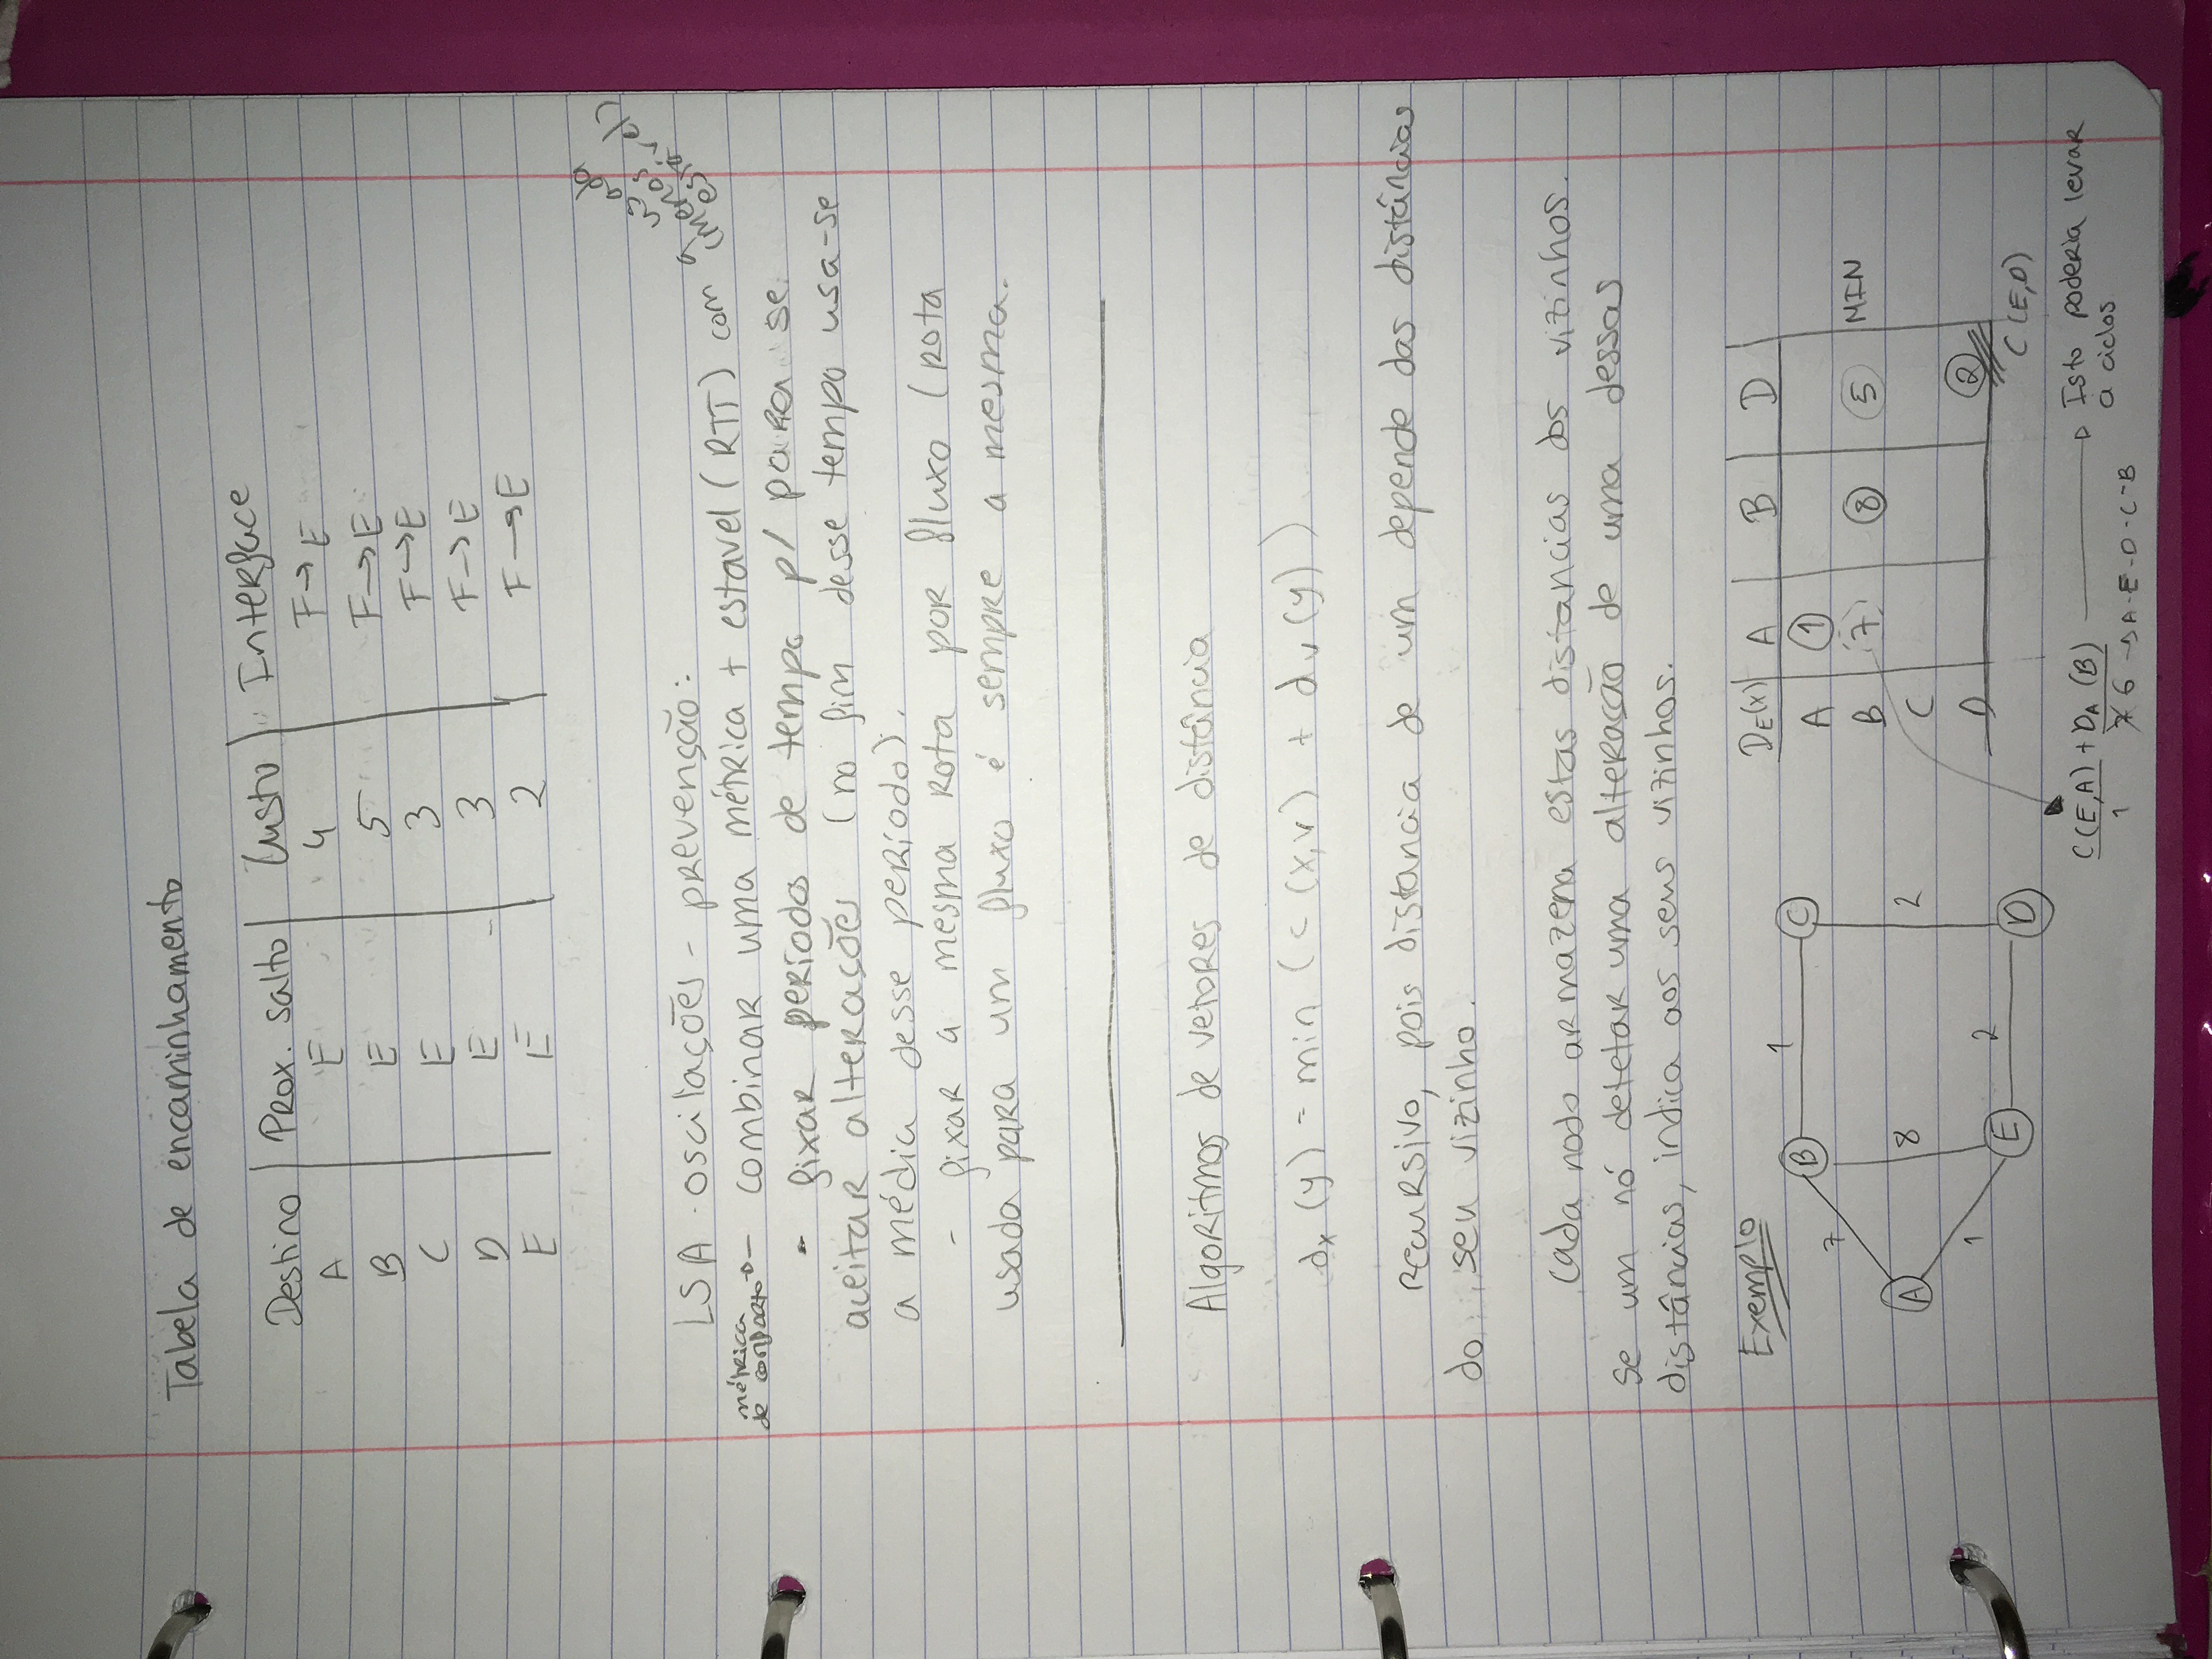 Tabela de encaminhamento
Destino | Prox. salto | Custo | Interface
A | E | 4 | F → E
B | E | 5 | F → E
C | E | 3 | F → E
D | E | 3 | F → E
E | E | 2 | F → E
LSA - oscilações - prevensão:
métrica de → - combinar uma métrica + estavel (RTT) com a usada (menos estável)
- fixar períodos de tempo p/ para se
aceitar alterações (no fim desse tempo usa-se
a média desse período).
- fixar a mesma rota por fluxo (rota
usada para um fluxo é sempre a mesma.
Algoritmos de vetores de distância
dx (y) = min (c (x,v) + dv (y))
Recursivo, pois distancia de um depende das distâncias
do seu vizinho.
Cada nodo armazena estas distancias dos vizinhos.
Se um nó detetar uma alteração de uma dessas
distâncias, indica aos seus vizinhos.
Exemplo
B 1 C
7
A 8 2
1
E 2 D
DE(x) | A | B | D
A | 1
B | 7 | 8 | 5 | MIN
C
D | 2
C (E,D)
C(E,A) + DA (B) → Isto poderia levar
a ciclos
1 7 6 → A-E-D-C-B